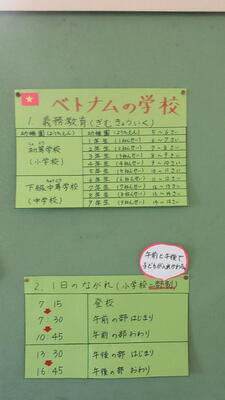 ベトナムの学校
1. 義務教育(ぎむきょういく)
幼稚園(ようちえん) 幼稚園(ようちえん) 5~6さい
初等学校 1年生(1ねんせー) 6~7さい
(小学校) 2年生(2ねんせー) 7~8さい
3年生(3ねんせー) 8~9さい
4年生(4ねんせー) 9~10さい
5年生(5ねんせー) 10~11さい
下級中等学校 6年生(6ねんせー) 11~12さい
(中学校) 7年生(7ねんせー) 12~13さい
8年生(8ねんせー) 13~14さい
9年生(9ねんせー) 14~15さい
午前と午後で
子どもが入れかわる。
2. 1日のながれ(小学校二部制)
7:15 登校
7:30 午前の部 はじまり
10:45 午前の部 おわり
13:30 午後の部 はじまり
16:45 午後の部 おわり